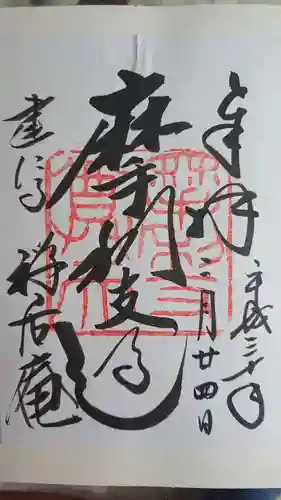 奉拝
平成三十年
二月廿四日
摩利支天
建仁寺
禅居庵